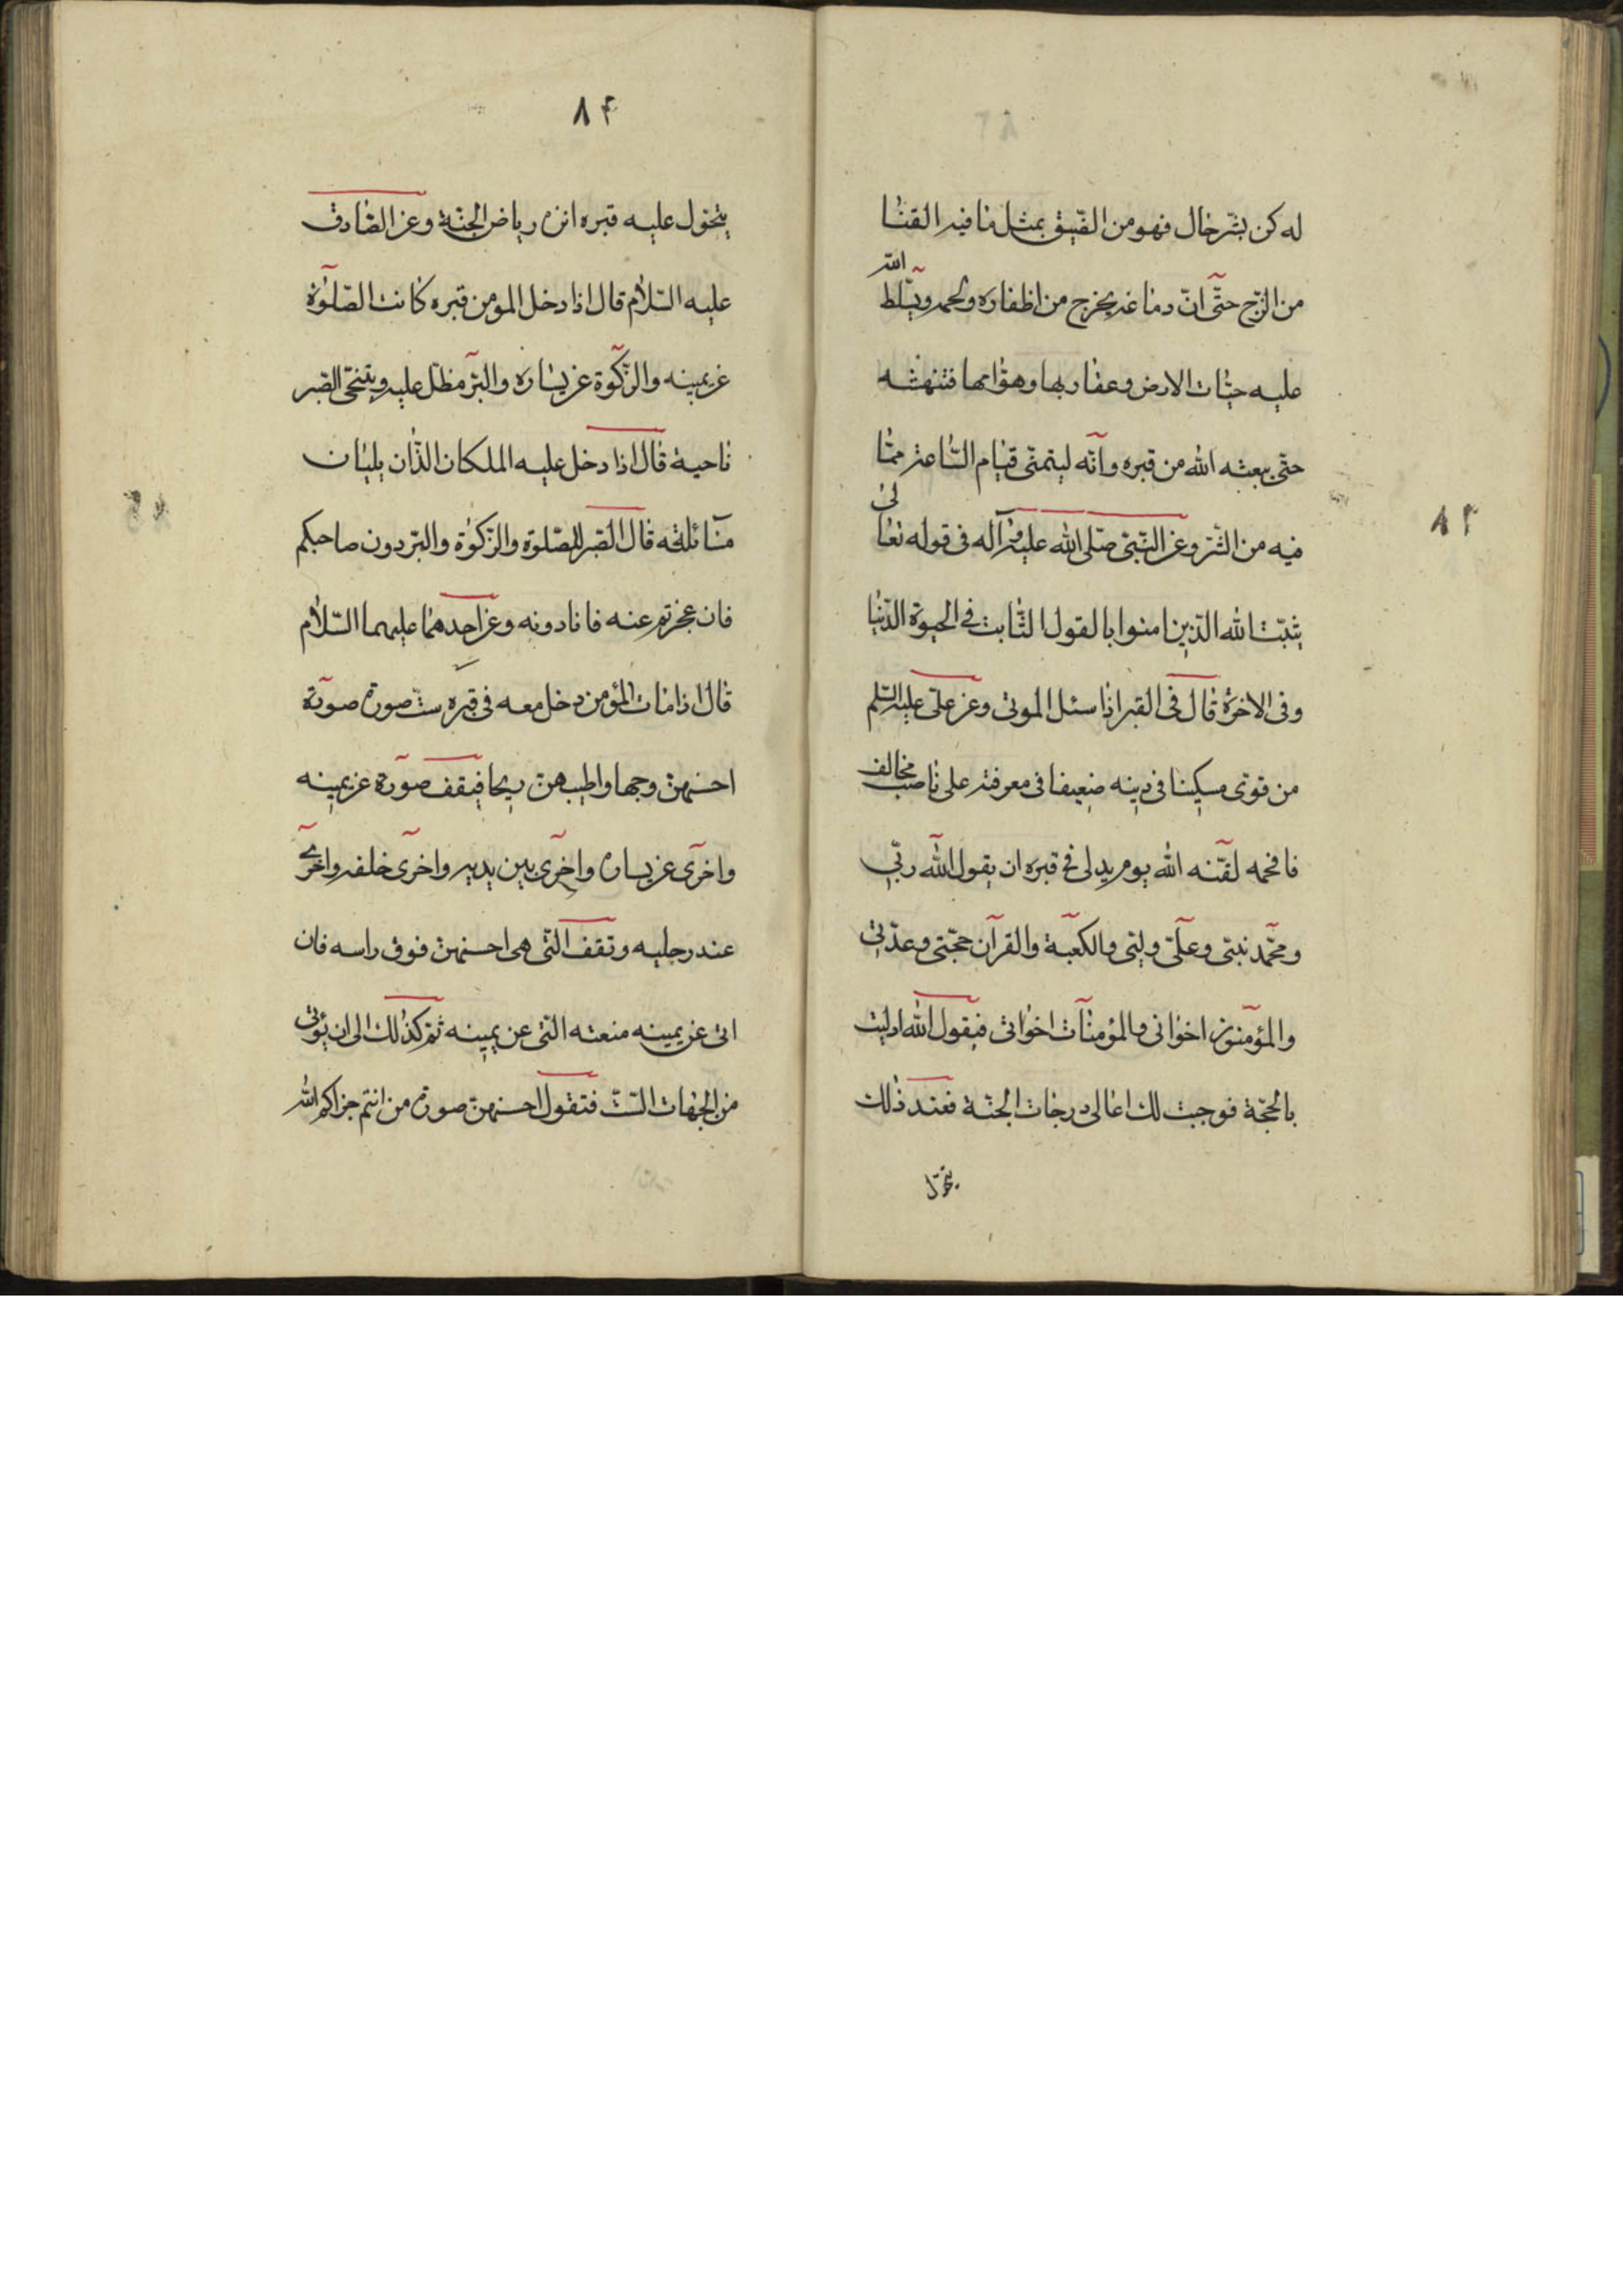 له كن بشرّ حال فهو من الضّيق بمثل ما فيه القنا
من الزّج حتّى انّ دماغه يخرج من اظفاره ولحمه ويسّلط الله
عليه حيّات الارض وعقاربها وهوّامها فتنهشه
حتى يبعثه الله من قبره وانّه ليتمنّى قيام السّاعة ممّا
فيه من الشّر وعن النّبيّ صلّى الله عليه وآله فى قوله تعالى
يثبّت الله الّذين امنوا بالقول الثّابت في الحيوة الدّنيا
وفى الاخرة قال فى القبر اذا سئل الموتى وعن علىّ عليه السّلم
من قوّى مسكينا فى دينه ضعيفا فى معرفته على ناصب مخالف
فافحمه لقّنه الله يوم يدلى فى قبره ان يقول الله ربّي
ومحمّد نبيّى وعلىّ وليّى والكعبة والقرآن حجّتى وعدّتى
والمؤمنون اخوانى والمؤمنات اخواتى فيقول الله ادليت
بالحجّة فوجبت لك اعالى درجات الجنّة فعند ذلك
يتحوّل
٨٣
٨٤
يتحوّل عليه قبره انزه رياض الجنّة وعن الصّادق
عليه السّلام قال اذا دخل المومن قبره كانت الصّلوة
عن يمينه والزّكوة عن يساره والبرّ مظلّ عليه ويتنحّى الصّبر
ناحية قال اذا دخل عليه الملكان الذّان يليان
مسائلته قال الصّبر للصّلوة والزّكوة والبرّ دون صاحبكم
فان عجزتم عنه فانا دونه وعن احدهما عليهما السّلام
قال اذا مات المؤمن دخل معه فى قبره ستّ صور صورة
احسنهنّ وجها واطيبهنّ ريحا فيقف صورة عن يمينه
واخرى عن يساره واخرى بين يديه واخرى خلفه واخرى
عند رجليه وتقف الّتى هى احسنهنّ فوق راسه فان
اتى عن يمينه منعته الّتى عن يمينه ثمّ كذلك الى ان يؤتى
من الجهات السّتّ فتقول احسنهنّ صورة من انتم جزاكم الله